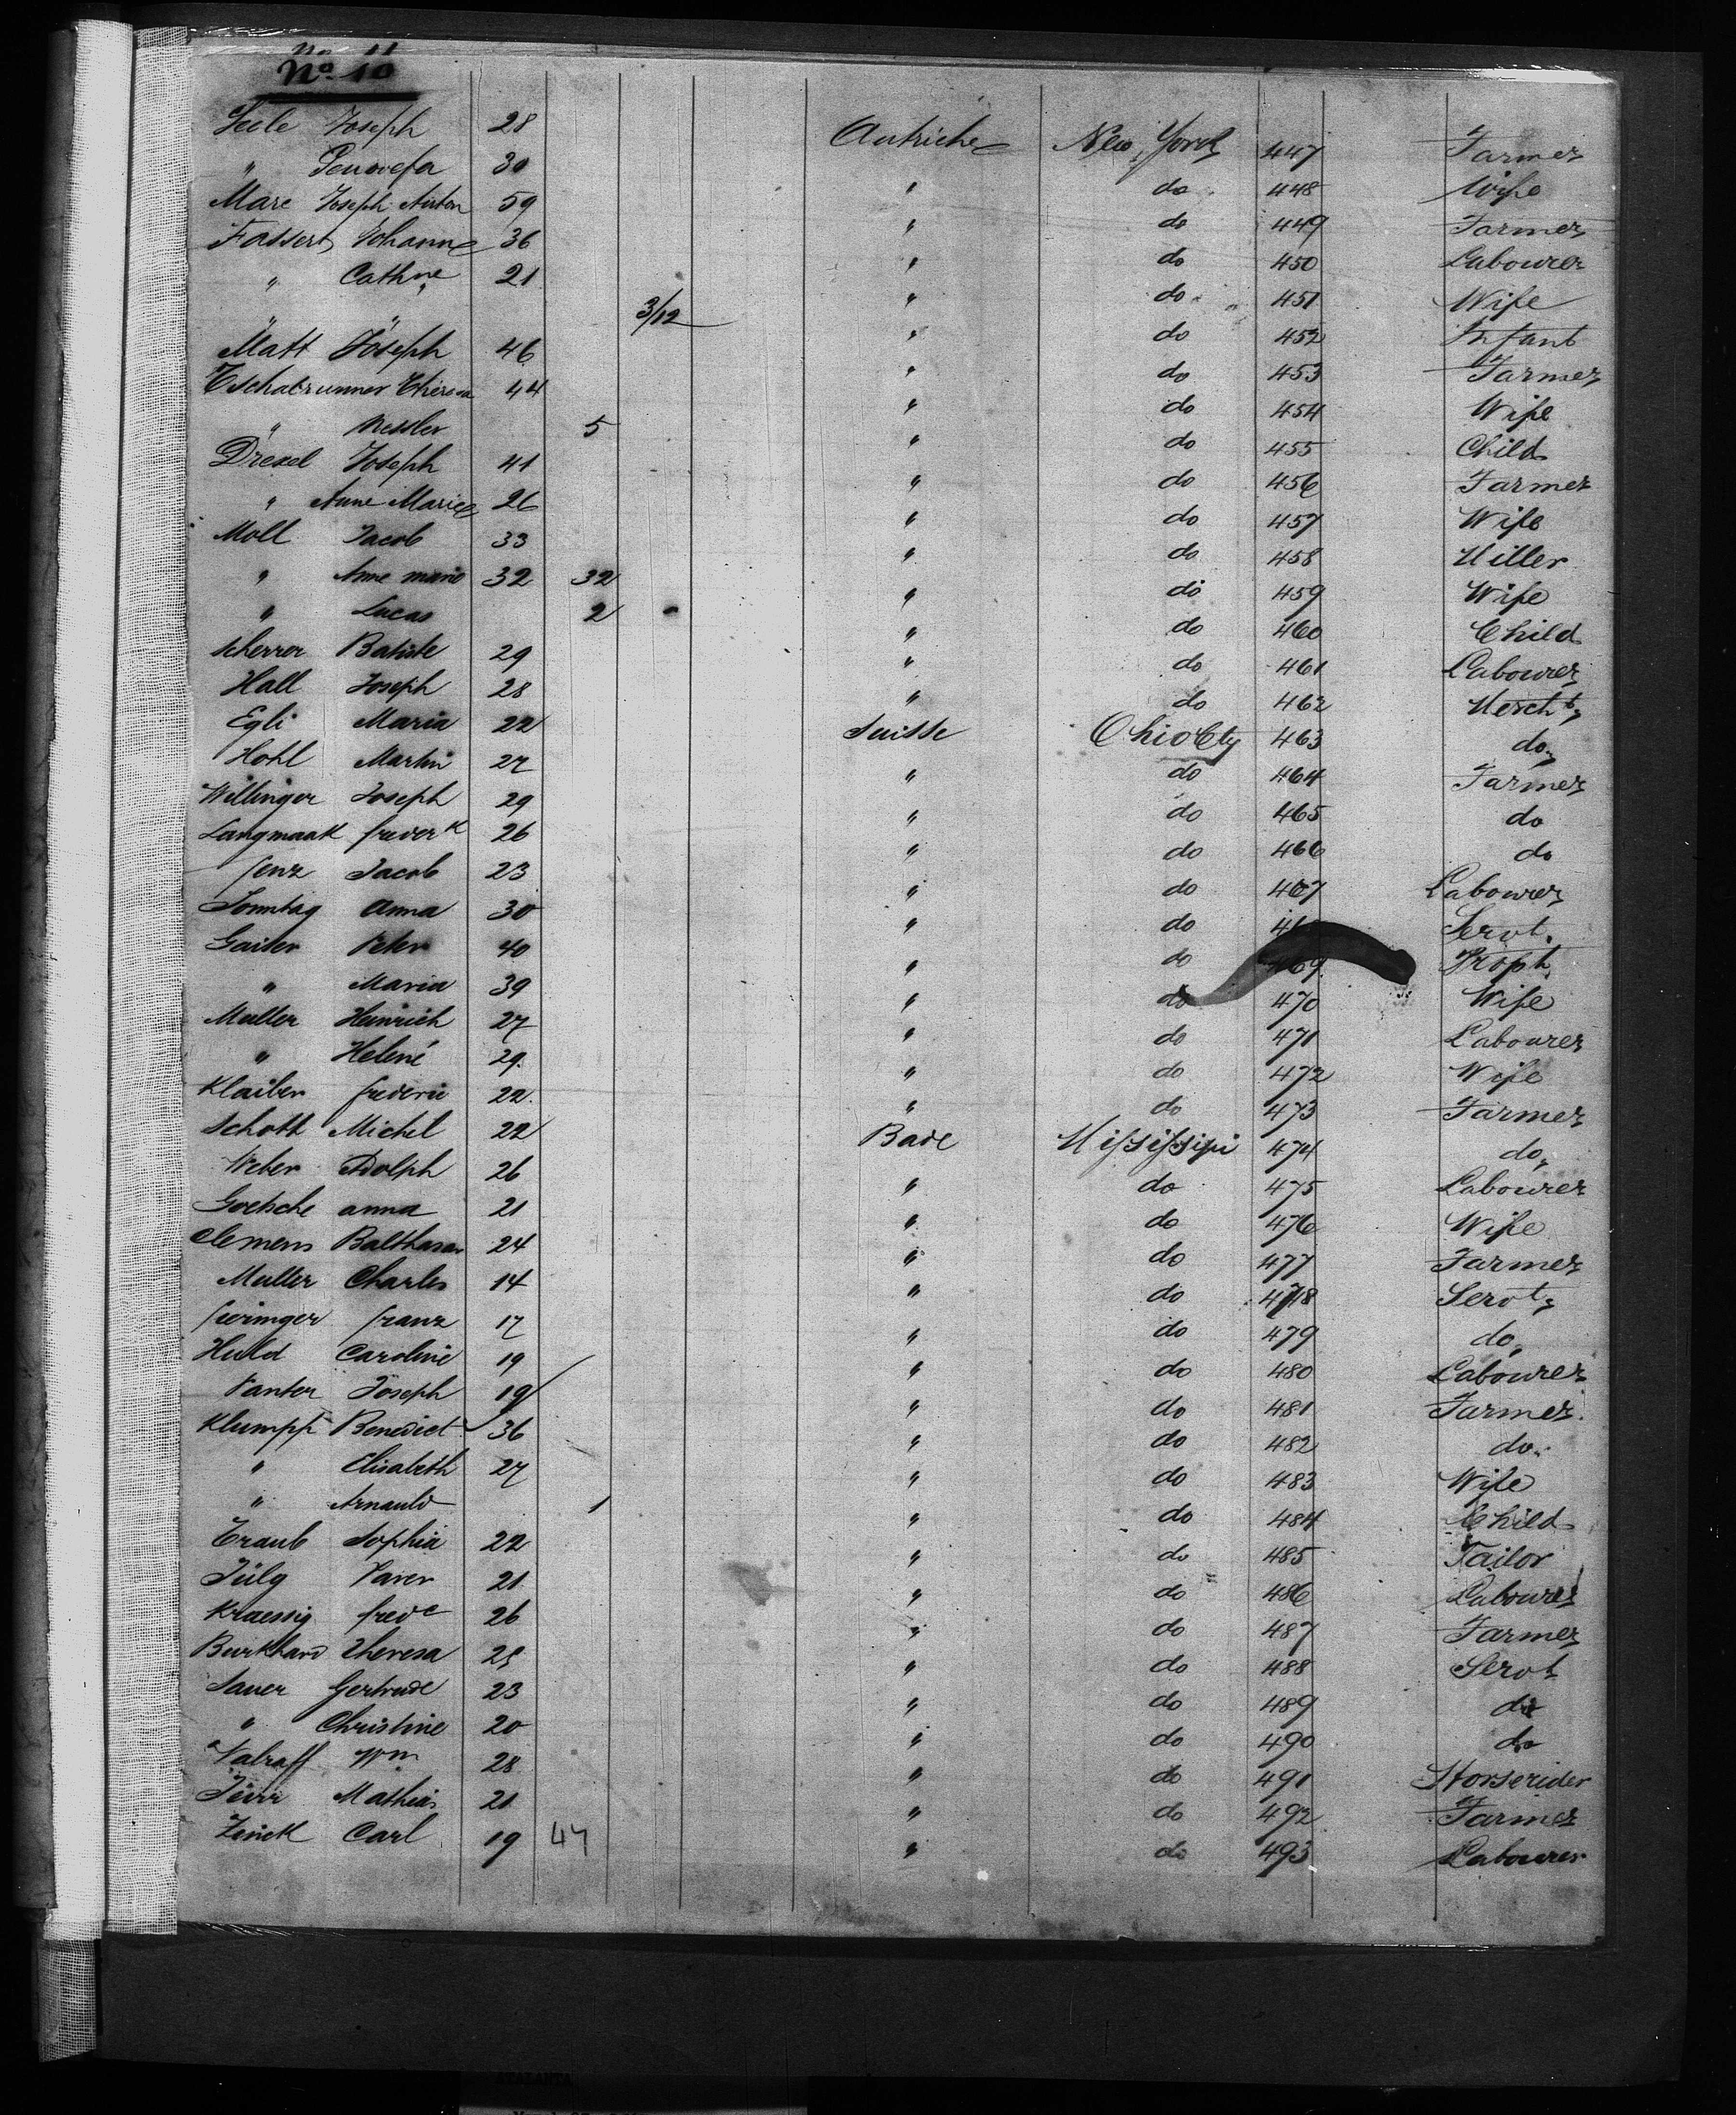 No 11
No 10
Seile Joseph 28 Autriche New York 447 Farmer
" Genovefa 30 " do 448 Wife
Marc Joseph Anton 59 " do 449 Farmer
Fassert Johann 36 " do 450 Labourer
" Cathne 21 " do 451 Wife
" " 3/12 " do 452 Infant
Matt Joseph 46 " do 453 Farmer
Tschabrunner Theresa 44 " do 454 Wife
" Kessler 5 " do 455 Child
Drexel Joseph 41 " do 456 Farmer
" Anne Marie 26 " do 457 Wife
Moll Jacob 33 " do 458 Miller
" Anne marie 32 32 " do 459 Wife
" Lucas 2 " do 460 Child
Scherrer Batiste 29 " do 461 Labourer
Hall Joseph 28 " do 462 Mercht
Egli Maria 22 Suisse Ohio City 463 do
Hohl Martin 27 " do 464 Farmer
Willinger Joseph 29 " do 465 do
Langmaak frederk 26 " do 466 do
fenz Jacob 23 " do 467 Labourer
Sonntag Anna 30 " do Servt
Gaiser Peter 40 " do 469 Propt
" Maria 39 " do 470 Wife
Muller Heinrich 27 " do 471 Labourer
" Helené 29 " do 472 Wife
Klaiber frederic 22 " do 473 Farmer
Schott Michel 22 Bade Missisipi 474 do
Weber Adolph 26 " do 475 Labourer
Goetsche anna 21 " do 476 Wife
Clemens Balthasar 24 " do 477 Farmer
Muller Charles 14 " do 478 Servt
fieringer franz 17 " do 479 do
Huld Caroline 19 " do 480 Labourer
Panter Joseph 19 " do 481 Farmer
Klumpp Benedict 36 " do 482 do
" Elisabeth 27 " do 483 Wife
" Arnauld 1 " do 484 Child
Traub Sophia 22 " do 485 Tailor
Jülg Xaver 21 " do 486 Labourer
Kraessig fredc 26 " do 487 Farmer
Burkhard Theresa 25 " do 488 Servt
Sauer Gertrude 23 " do 489 do
" Christine 20 " do 490 do
Valraff Wm 28 " do 491 Horserider
Mathias 21 " do 492 Farmer
Zinck Carl 19 47 " do 493 Labourer